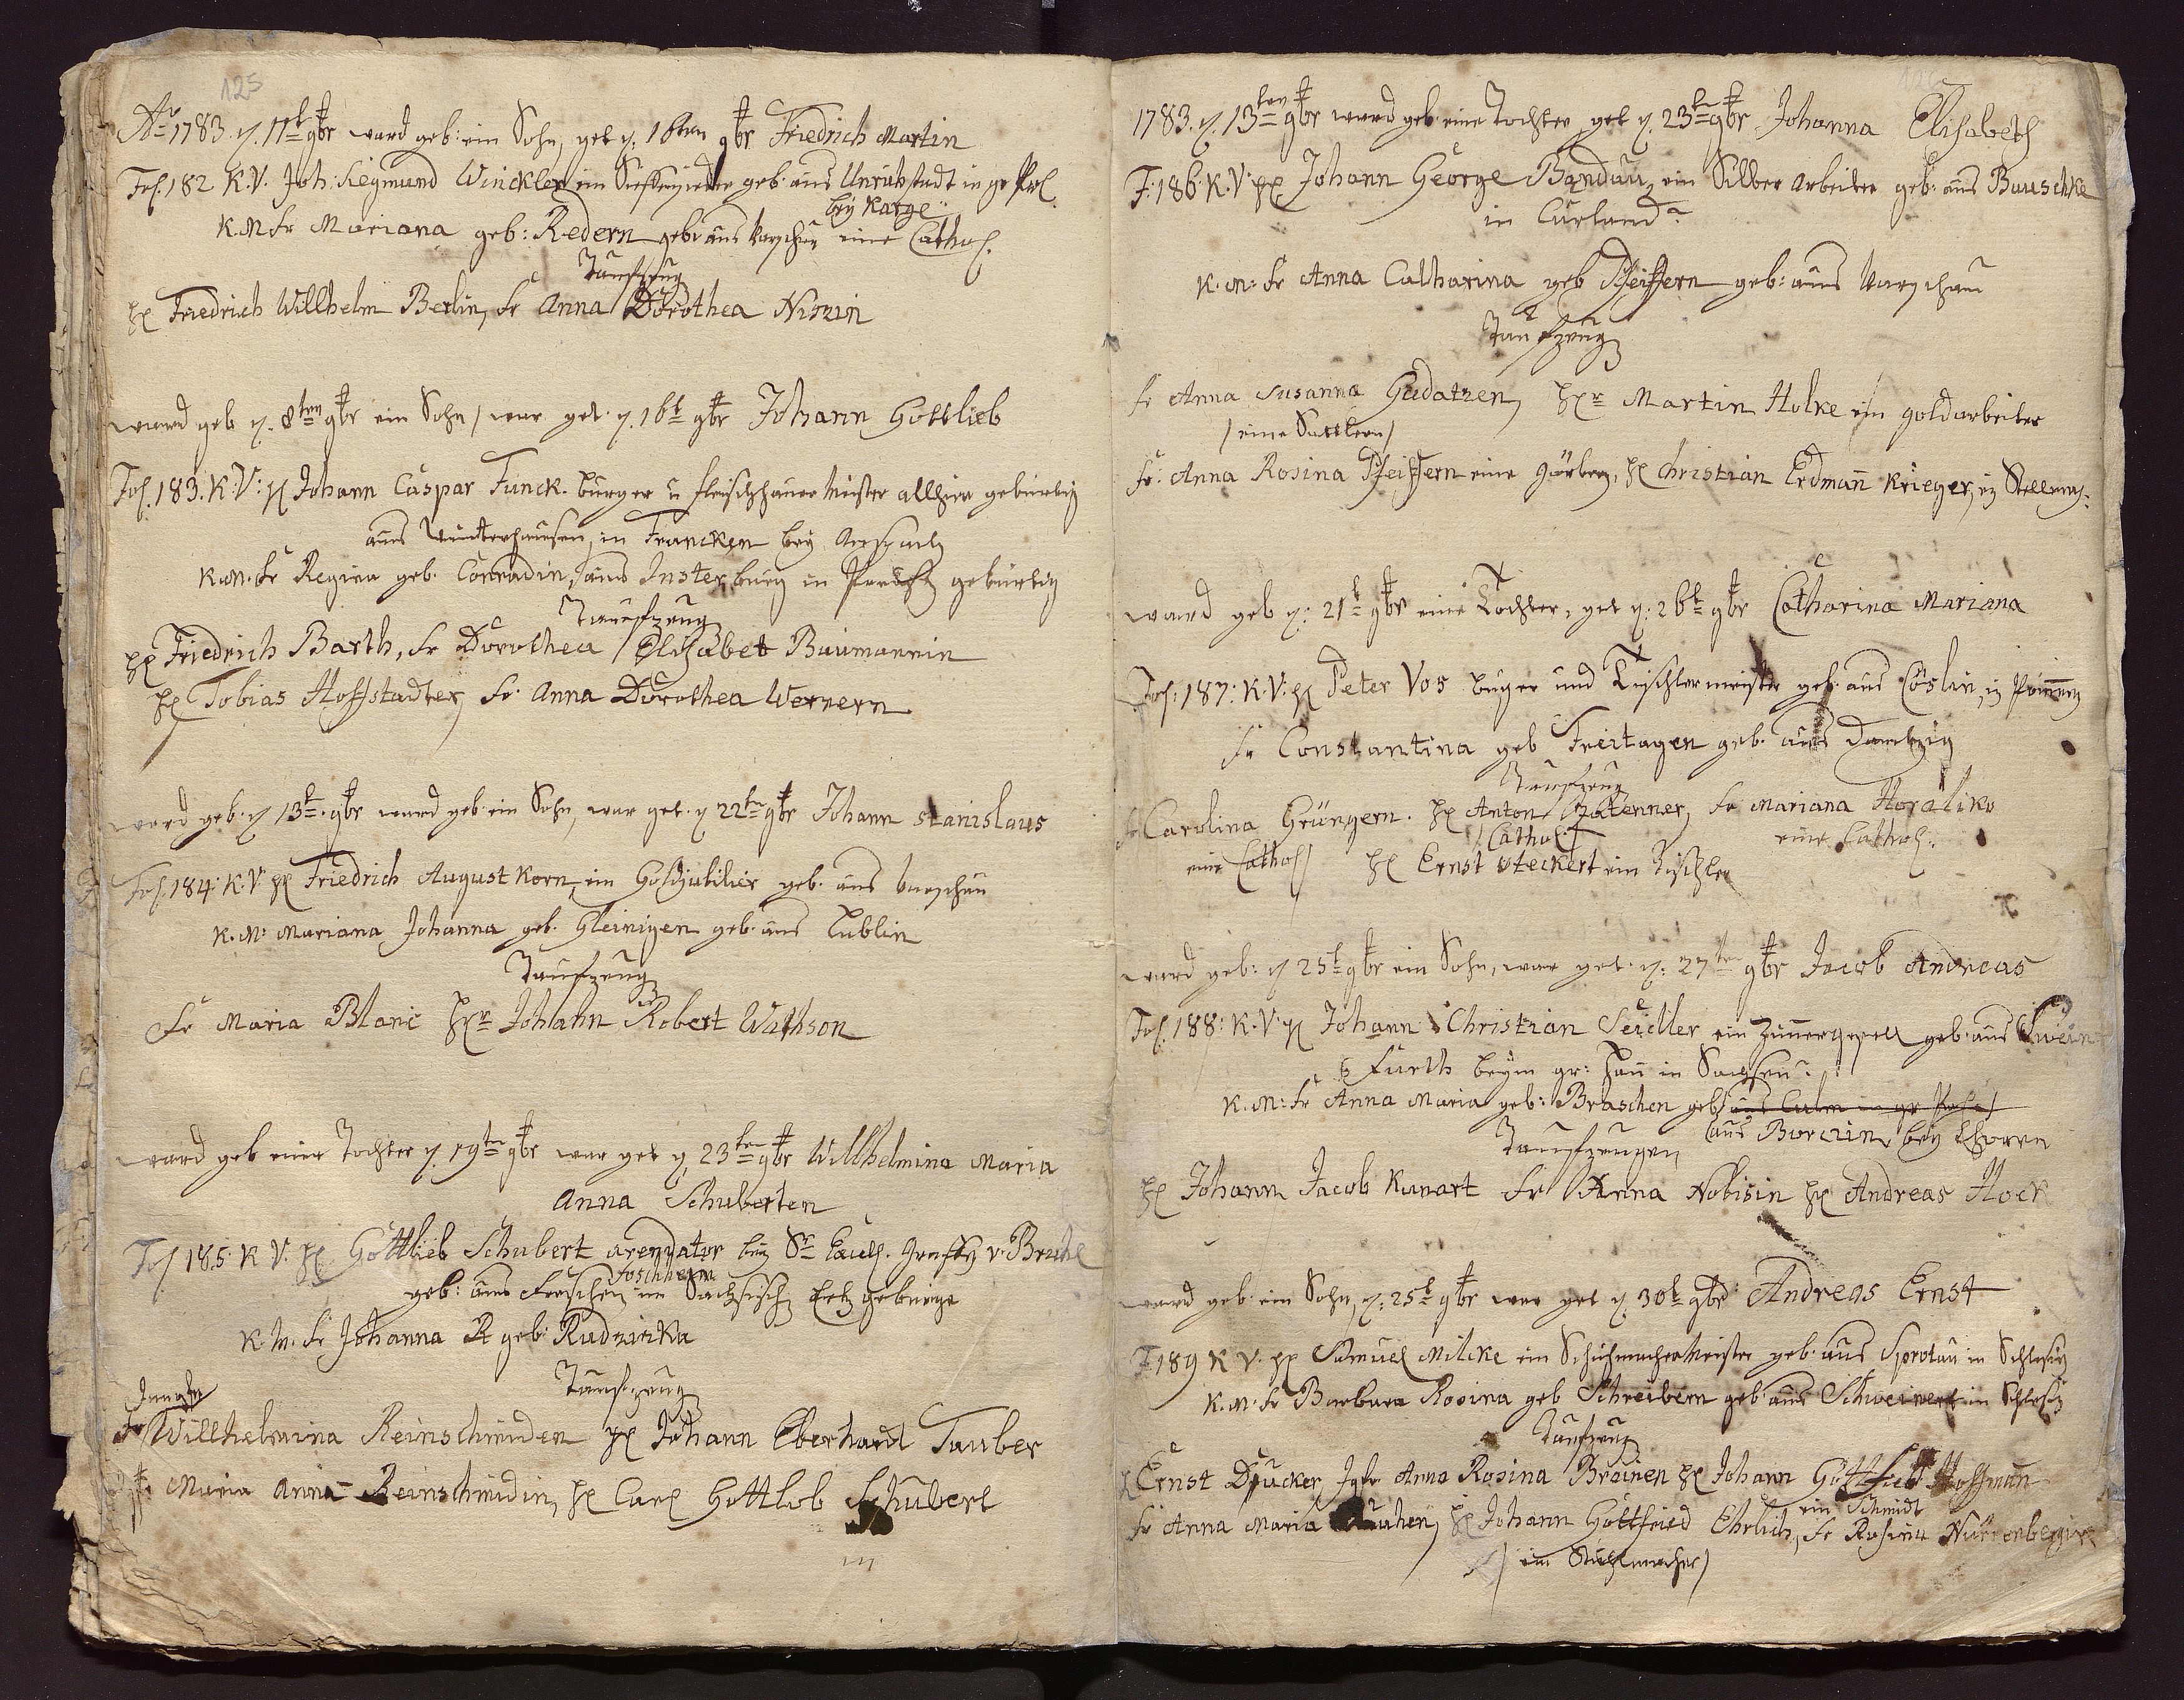 125
Aõ 1783. d. 11t 9br ward geb: ein Sohn, get d. 16ten 9br Friedrich Martin
Fol. 182 K.V. Joh: Siegmund Winckler ein geb: aus Unruhstadt in gr Pol
bey Karge
K.M Fr Mariana geb: Redern geb: aus Warschau eine Cathol.
Taufzeug
H Friedrich Willhelm Berlin, Fr Anna Dorothea
ward geb d. 8ten 9br ein Sohn, war get. d. 16t 9br Johann Gottlieb
Fol. 183. K:V: H Johann Caspar Funck. Burger u Fleischhauer Meister allhier gebürtig
aus Winterhausen, in Francken bey
K.M. Fr Regina geb. Conradin, aus Insterburg in gebürtig
Taufzeug
H Friedrich Barth, Fr Dorothea Elisabet Baumannin
H Tobias Hoffstadter, Fr. Anna Dorothea Wernern
ward geb. d 13t. 9br ward geb. ein Sohn, war get. d 22ten 9br Johann Stanislaus
Fol. 184. K.V H Friedrich August Korn, ein geb. aus Warschau
K.M: Mariana Johanna geb. Gleinigen geb. aus Lublin
Taufzeug
Fr Maria Blanc Hr Johann Robert Wathson
ward geb eine Tochter d 19ten 9br war get d. 23ten 9br Willhelmina Maria
Anna Schuberten
Fol 185. K V. H Gottlieb Schubert arendator bey Sr v. Bruhl
geb: aus im Sachsisch Ertz gebürge
K.M. Fr Johanna R geb: Rudzicka
Taufzeug
Jungfr
Willhelmina Reinschmiden H Johann Eberhardt Tauber
Maria Anna Reinschmidin, H Carl Gottlob Schubert
1783. d. 13ten 9br ward geb. eine Tochter, get d. 23ten 9br Johanna Elisabeth
F. 186. K.V: H Johann George Bandau, ein Silber arbeiter geb: aus Bauschke
in Curland
K.M: Fr Anna Catharina geb Pfeiffern geb: aus Warschau
Taufzeug
Fr Anna Susanna Gudatzen, Hr Martin Holke ein goldarbeiter
/eine Sattlern/
Fr: Anna Rosina Pfeiffern eine H Christian Erdman̄ Krieger,
ward geb d: 21t 9br eine Tochter, get d: 26t 9br Catharina Mariana
Fol: 187. K.V: H Peter Vos burger und Tischlermeister geb. aus Cöslin, in
Fr Constantina geb Freitagen geb. aus Dantzig
Taufzeug
Fr Carolina Grüngern. H Anton Fr Mariana Horaliko
eine Cathol/ /Cathol/ eine Cathol.
H Ernst Steckert ein Tischler
ward geb: d 25t 9br ein Sohn, war get. d: 27ten 9br Jacob Andreas
Fol. 188: K.V. H Johann Christian Seidler ein Zim̄ergesell geb. aus Swein
Furth beym gr: in Sachsen
K.M: Fr Anna Maria geb: Braschen geb aus Culm in gr
aus bey Thoren
Taufzeugen
H Johann Jacob Kunart Fr Anna Nobisin H Andreas Hock
ward geb. ein Sohn, d: 25t 9br war get d. 30t 9br Andreas Ernst
F. 189 K V. H Samuel Milcke ein Schuhmacher Meister geb. aus Sprotau in Schlesig
K.M. Fr Barbara Rosina geb Schreibern geb aus in Schlesig
Taufzeug
H Ernst Drucker, Jgfr Anna Rosina Breinen H Johann Gottfried Hoffman̄
ein Schmidt
Fr Anna Maria H Johann Gottfried Ehrlich, Fr Rosina Nürrenbergin
/ein Stuhlmacher/